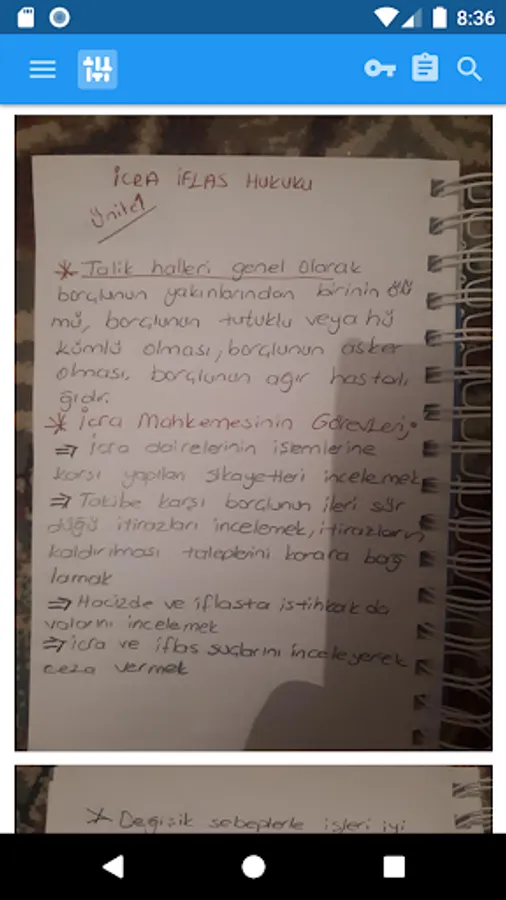 8:36
İCRA İFLAS HUKUKU
Ünite 1
* Talik halleri genel olarak
borçlunun yakınlarından birinin ölü
mü, borçlunun tutuklu veya hü
kümlü olması, borçlunun asker
olması, borçlunun ağır hastalı
ğıdır.
* İcra Mahkemesinin Görevleri;
⇒ İcra dairelerinin işemlerine
karşı yapılan şikayetleri incelemek
⇒ Takibe karşı borçlunun ileri sür
düğü itirazları incelemek, itirazların
kaldırılması taleplerini karara bağ
lamak
⇒ Hacizde ve iflasta istihkak da
valarını incelemek
⇒ icra ve iflas suçlarını inceleyerek
ceza vermek
* Değişik sebeplerle işleri iyi